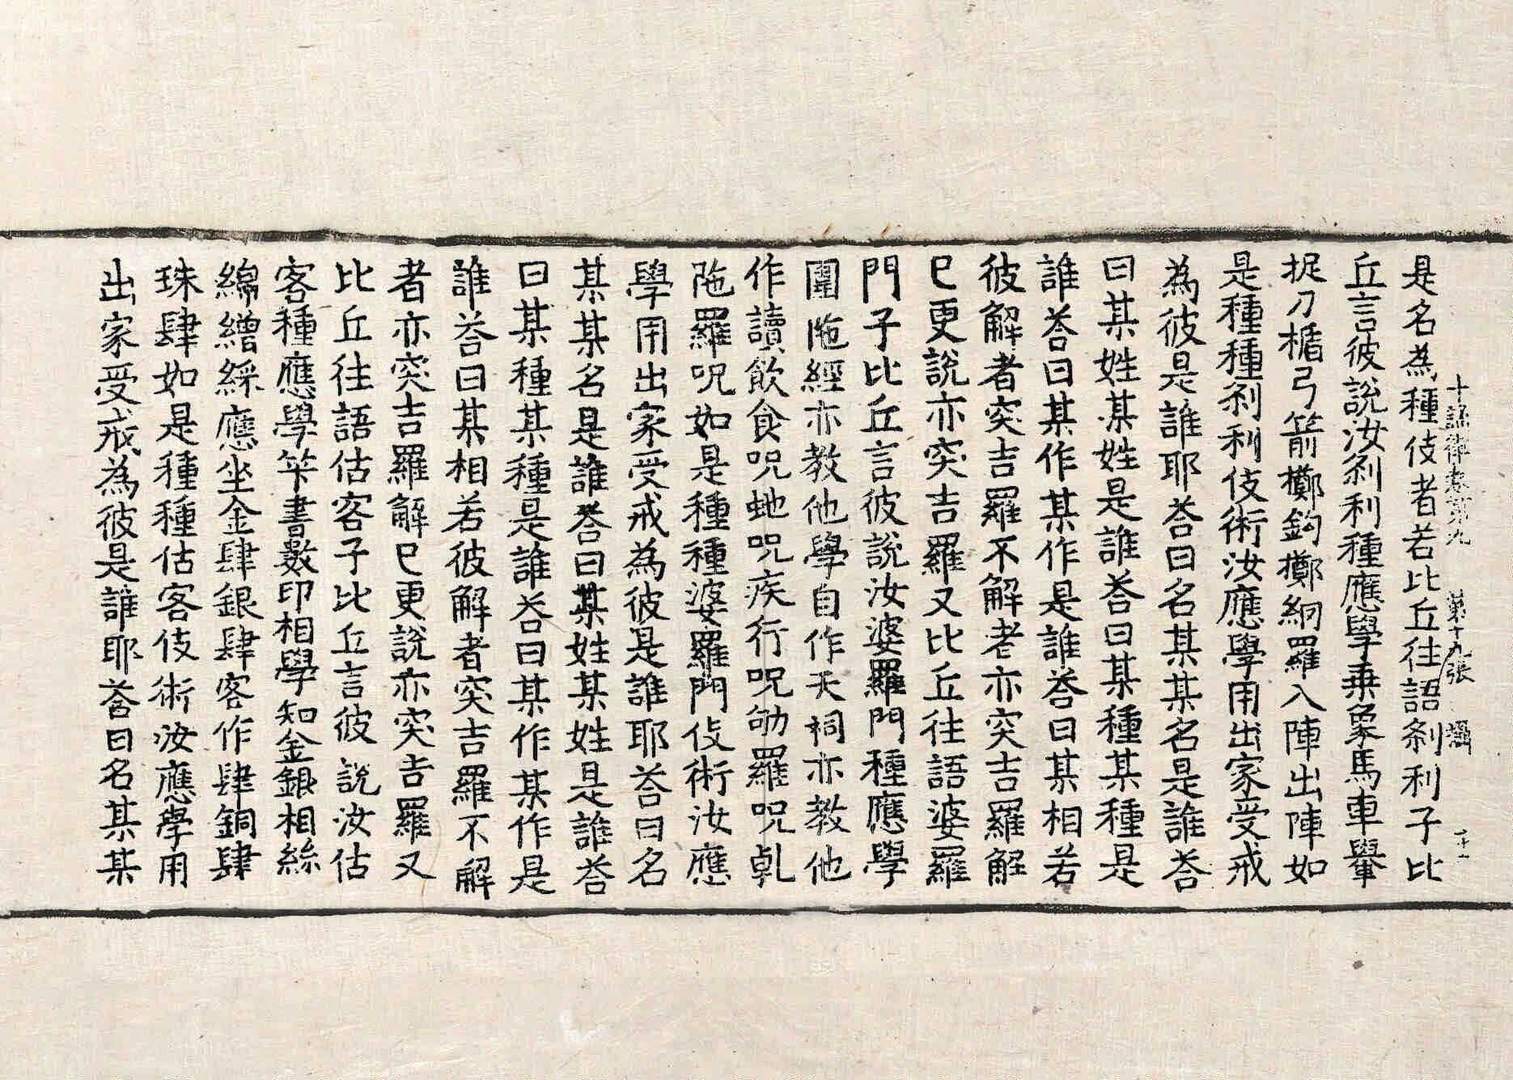 十誦律卷第九 第十九張
是名為種伎者若比丘往語剎利子比
丘言彼說汝剎利種應學乗象馬車轝
捉刀楯弓箭擲鈎擲䋄羅入陣出陣如
是種種剎利伎術汝應學用出家受戒
為彼是誰耶荅曰名某某名是誰荅
曰某姓某姓是誰荅曰某種某種是
誰荅曰某作某作是誰荅曰某相若
彼解者突吉羅不解者亦突吉羅解
已更說亦突吉羅又比丘往語婆羅
門子比丘言彼說汝婆羅門種應學
圍陁經亦教他學自作天祠亦教他
作讀飲食呪虵呪疾行呪劬羅呪乹
陁羅呪如是種種婆羅門伎術汝應
學用出家受戒為彼是誰耶荅曰名
某某名是誰荅曰某姓某姓是誰荅
曰某種某種是誰荅曰某作某作是
誰荅曰某相若彼解者突吉羅不解
者亦突吉羅解已更說亦突吉羅又
比丘往語估客子比丘言彼說汝估
客種應學筭書數印相學知金銀相絲
綿繒綵應坐金肆銀肆客作肆銅肆
珠肆如是種種估客伎術汝應學用
出家受戒為彼是誰耶荅曰名某某